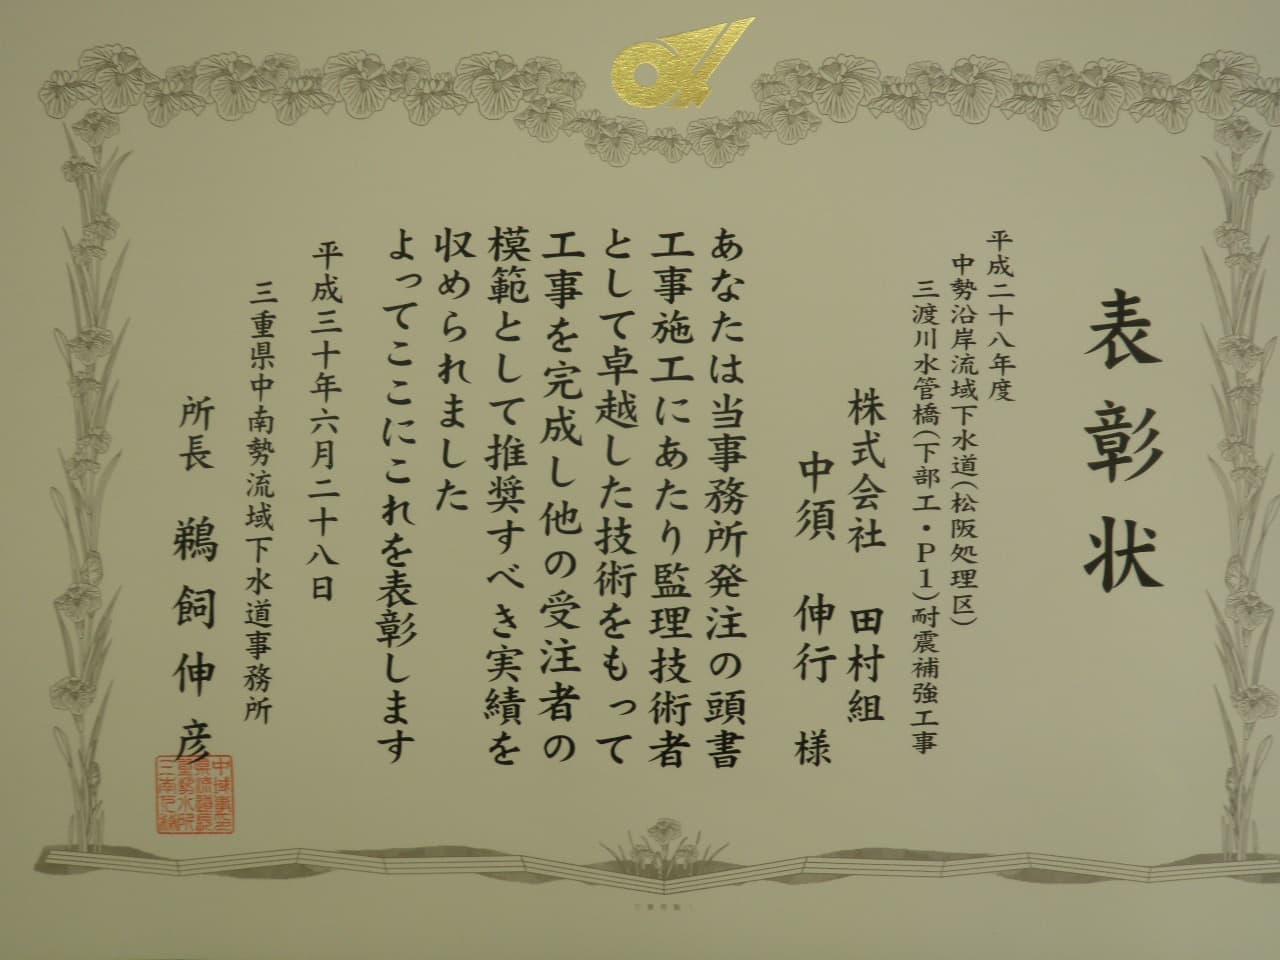 表彰状
平成二十八年度
中勢沿岸流域下水道(松阪処理区)
三渡川水管橋(下部工・P1)耐震補強工事
株式会社 田村組
中須 伸行 様
あなたは当事務所発注の頭書
工事施工にあたり監理技術者
として卓越した技術をもって
工事を完成し他の受注者の
模範として推奨すべき実績を
収められました
よってここにこれを表彰します
平成三十年六月二十八日
三重県中南勢流域下水道事務所
所長 鵜飼伸彦